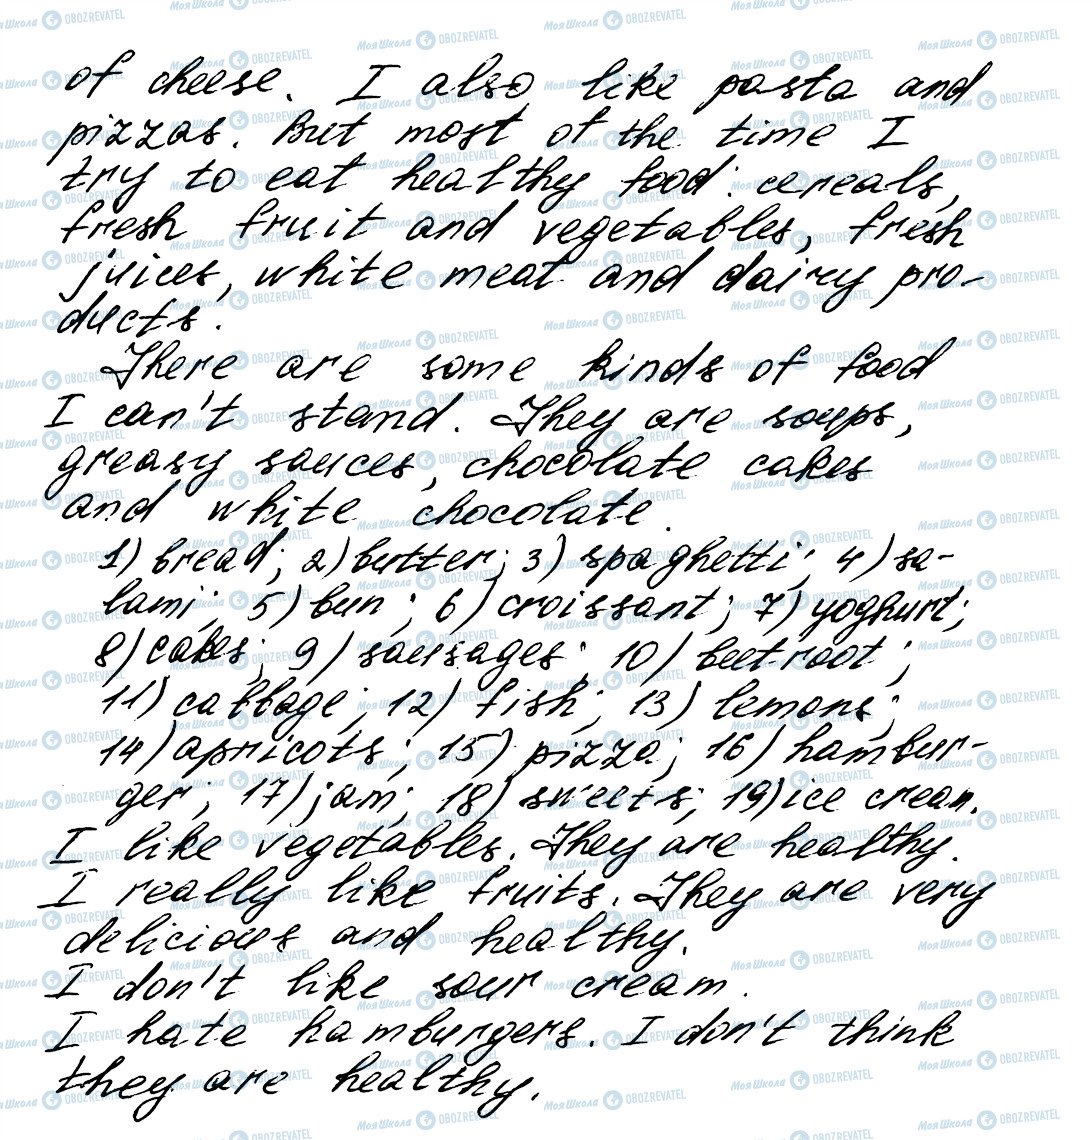 of cheese. I also like pasta and
pizzas. But most of the time I
try to eat healthy food: cereals,
fresh fruit and vegetables, fresh
juices, white meat and dairy pro-
ducts.
There are some kinds of food
I can't stand. They are soups,
greasy sauces, chocolate cakes
and white chocolate.
1) bread; 2) butter; 3) spaghetti; 4) sa-
lami; 5) bun; 6) croissant; 7) yoghurt;
8) cakes; 9) sausages; 10) beetroot;
11) cabbage; 12) fish; 13) lemons;
14) apricots; 15) pizza; 16) hambur-
ger; 17) jam; 18) sweets; 19) ice cream.
I like vegetables. They are healthy.
I really like fruits. They are very
delicious and healthy.
I don't like sour cream.
I hate hamburgers. I don't think
they are healthy.